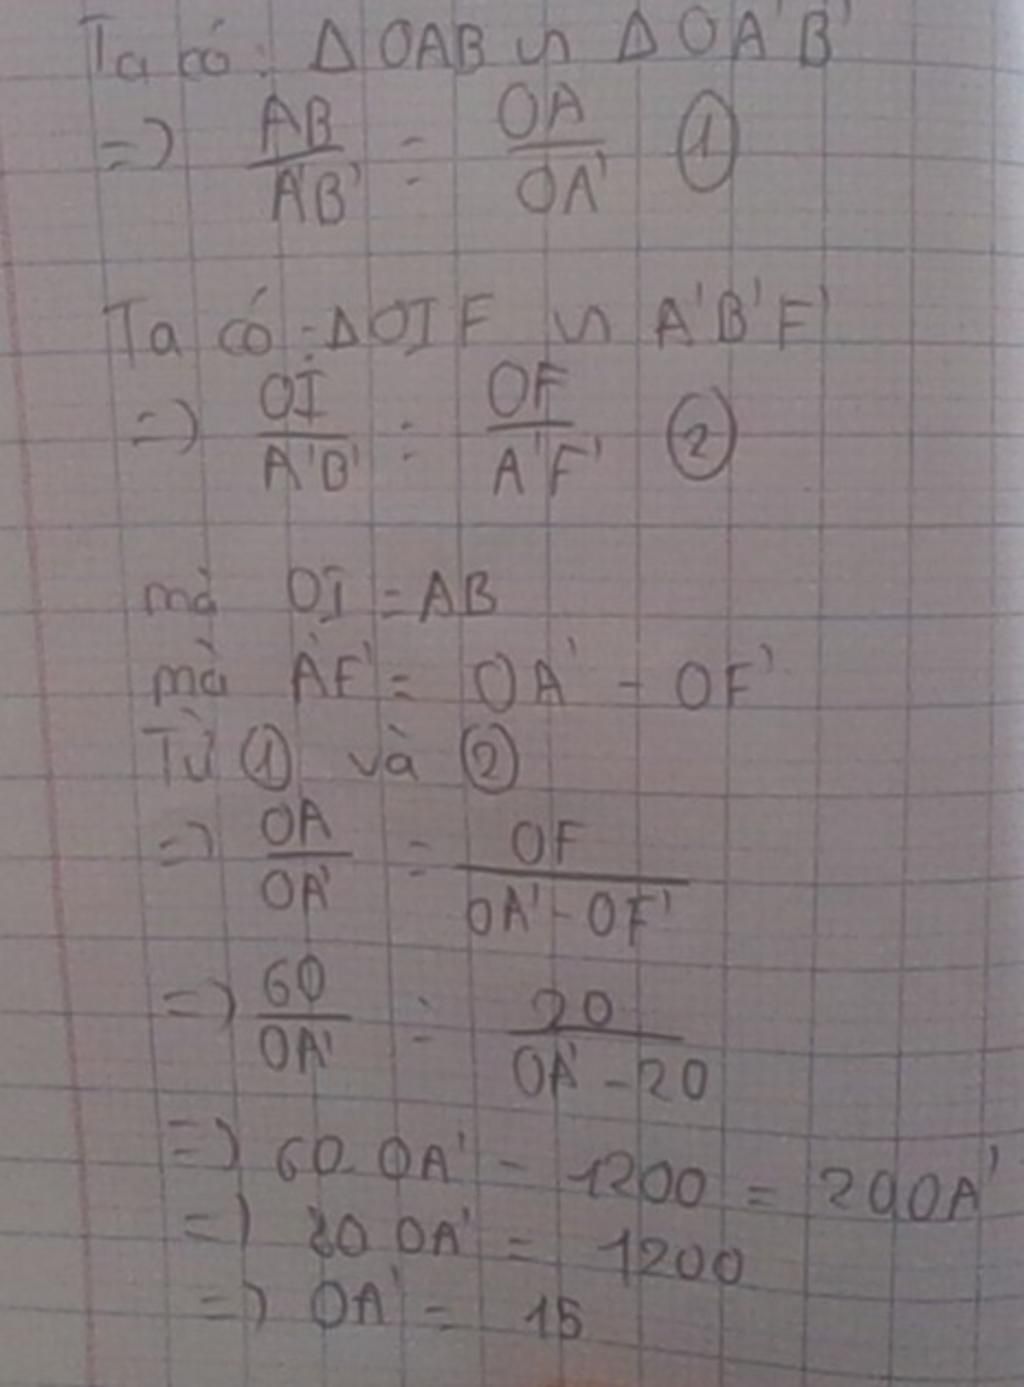 Ta có: Δ OAB ᔕ Δ OA'B'
=> AB/A'B' = OA/OA' ①
Ta có: ΔOIF ᔕ A'B'F'
=> OI/A'B' = OF/A'F' ②
mà OI = AB
mà A'F' = OA' - OF'
Từ ① và ②
=> OA/OA' = OF/OA' - OF'
=> 60/OA' = 20/OA' - 20
=> 60 OA' - 1200 = 20 OA'
=> 80 OA' = 1200
=> OA' = 15